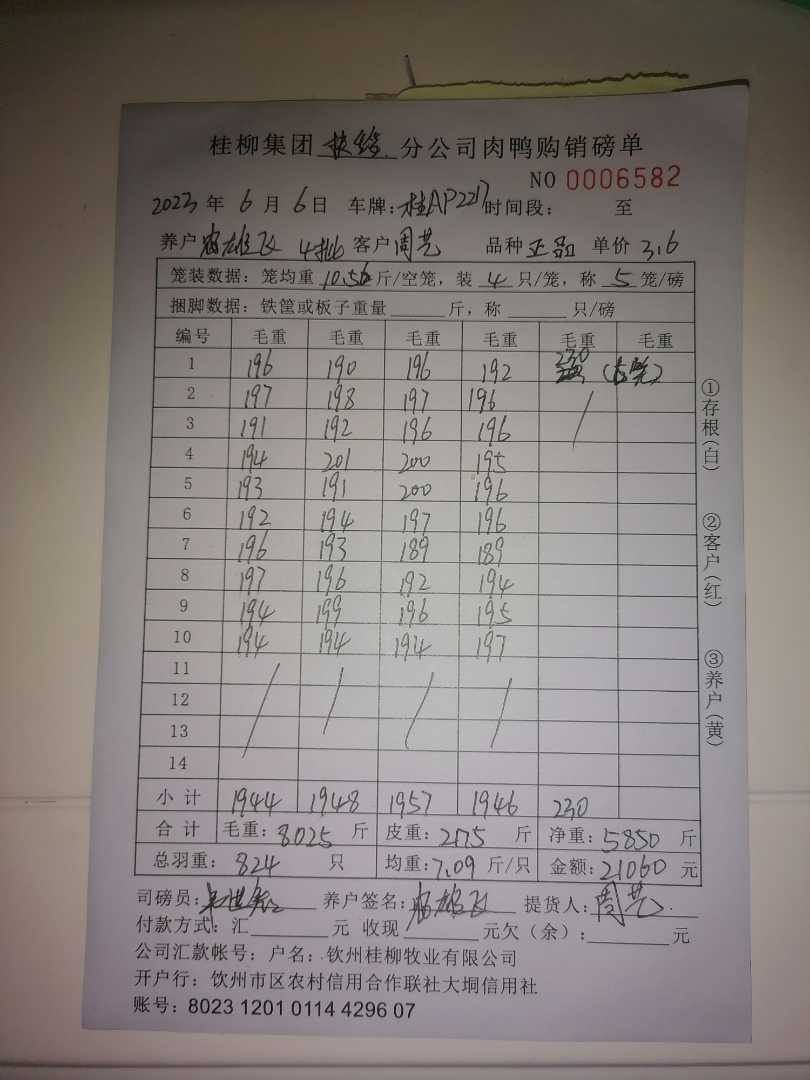 桂柳集团 分公司肉鸭购销磅单
NO 0006582
2023 年 6 月 6 日 车牌:桂AP2217 时间段: 至
养户 雄飞 4批 客户 周艺 品种 正品 单价 3.6
笼装数据: 笼均重 10.56 斤/空笼, 装 4 只/笼, 称 5 笼/磅
捆脚数据: 铁筐或板子重量 斤, 称 只/磅
编号 毛重 毛重 毛重 毛重 毛重 毛重
1 196 190 196 192 230
2 197 198 197 196 /
3 191 192 196 196
4 194 201 200 195
5 193 191 200 196
6 192 194 197 196
7 196 193 189 189
8 197 196 192 194
9 194 199 196 195
10 194 194 194 197
11 / / / /
12
13
14
小计 1944 1948 1957 1946 230
合计 毛重: 8025 斤 皮重: 2175 斤 净重: 5850 斤
总羽重: 824 只 均重: 7.09 斤/只 金额: 21060 元
司磅员: 养户签名: 雄飞 提货人: 周艺
付款方式: 汇 元 收现 元欠(余): 元
公司汇款帐号: 户名: 钦州桂柳牧业有限公司
开户行: 钦州市区农村信用合作联社大垌信用社
账号: 8023 1201 0114 4296 07
①存根(白)
②客户(红)
③养户(黄)